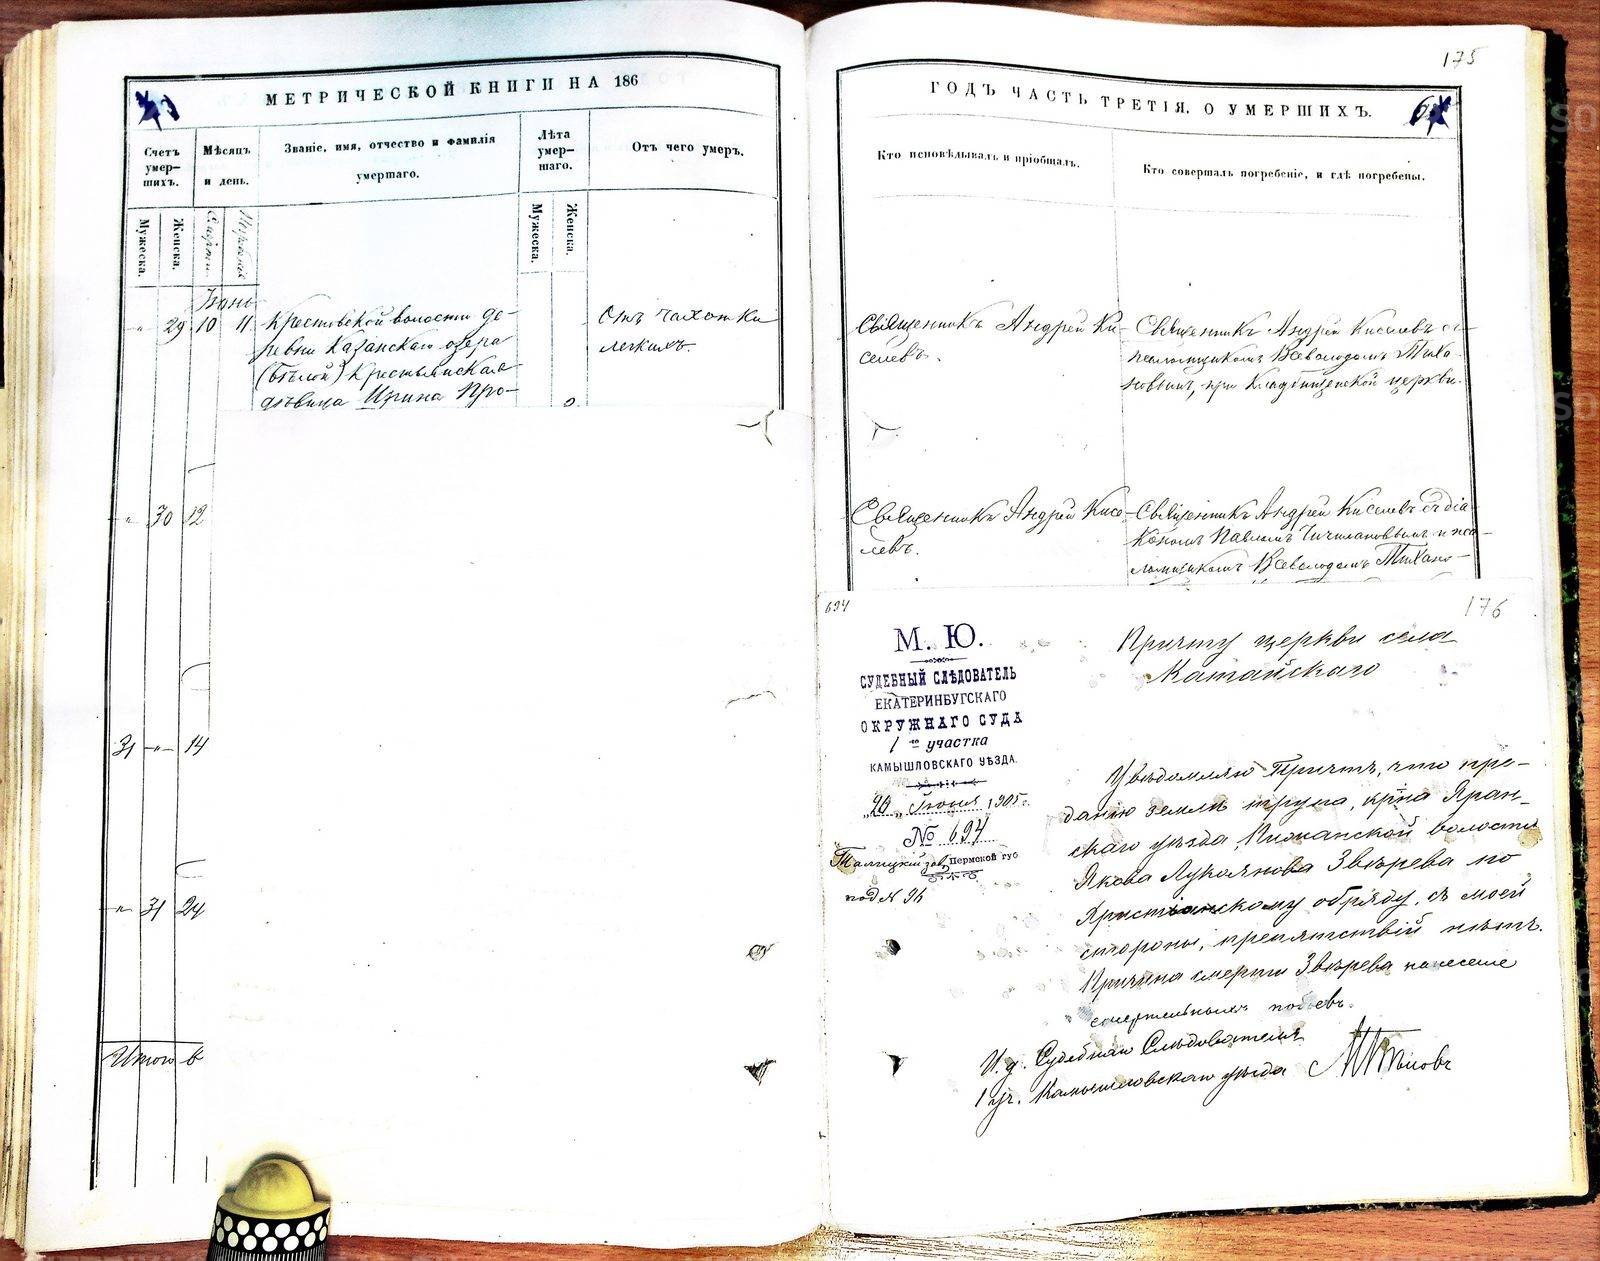 175
МЕТРИЧЕСКОЙ КНИГИ НА 186
ГОДЪ ЧАСТЬ ТРЕТІЯ. О УМЕРШИХЪ.
Счетъ умер–шихъ.
Мѣсяцъ и день.
Званіе, имя, отчество и фамилія умершаго.
Лѣта умер–шаго.
Отъ чего умеръ.
Кто исповѣдывалъ и пріобщалъ.
Кто совершалъ погребеніе, и гдѣ погребены.
Мужеска.
Женска.
Смерти.
Погребенія
Мужеска.
Женска.
Іюнь
„ 29 10 11
Крестовской волости де-
ревни Казанскаго озера
(Бѣлой) Крестьянская
дѣвица Ирина Про-
Отъ чахотки
легкихъ.
Священникъ Андрей Ки-
селевъ.
Священникъ Андрей Киселевъ съ
псаломщикомъ Всеволодомъ Тихо-
новымъ, при Кладбищенской церкви.
„ 30 12
Священникъ Андрей Кисе-
левъ.
Священникъ Андрей Киселевъ съ діа-
кономъ Павломъ и пса-
ломщикомъ Всеволодомъ Тихоно-
31 „ 14
„ 31 24
Итого 6
694
176
М. Ю.
СУДЕБНЫЙ СЛѢДОВАТЕЛЬ
ЕКАТЕРИНБУГСКАГО
ОКРУЖНАГО СУДА
1 го участка
КАМЫШЛОВСКАГО УѢЗДА.
„26„ Іюня 1905 г.
№ 694
Талицкій зав. Пермской губ
под N 94
Причту церкви села
Катайскаго
Увѣдомляю Причтъ, что пре-
данію землѣ трупа, кр̃на Яран-
скаго уѣзда, волости
Якова Лукоянова Звѣрева по
Христіанскому обряду, съ моей
стороны, препятствій нѣтъ.
Причина смерти Звѣрева нанесеніе
смертельныхъ побоевъ.
И. д. Судебнаго Слѣдователя
1 уч. Камышловскаго уѣзда